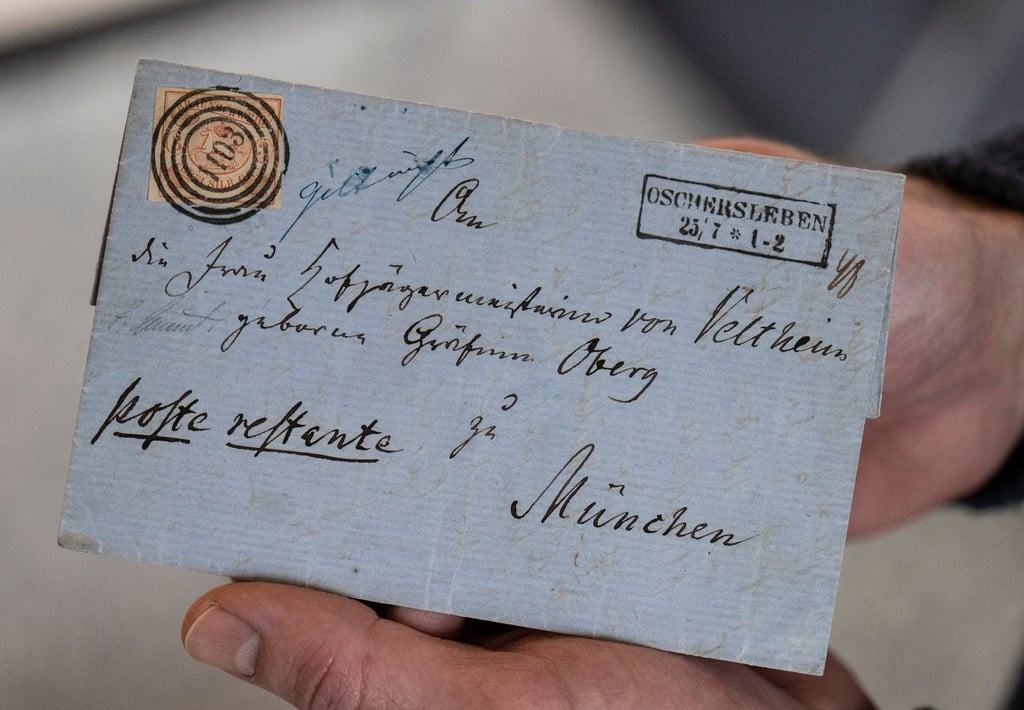 1103
gilt nicht
An
OSCHERSLEBEN
25/7 * 1-2
die Frau Hofjägermeisterinn von Veltheim
geborne Gräfinn Oberg
poste restante
zu
München